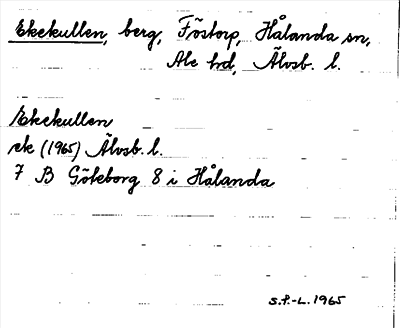 Ekekullen, berg, Föstorp, Hålanda sn,
Ale hd, Älvsb. l.
Ekekullen
ek (1965) Älvsb. l.
7 B Göteborg 8 i Hålanda
S.P.-L. 1965